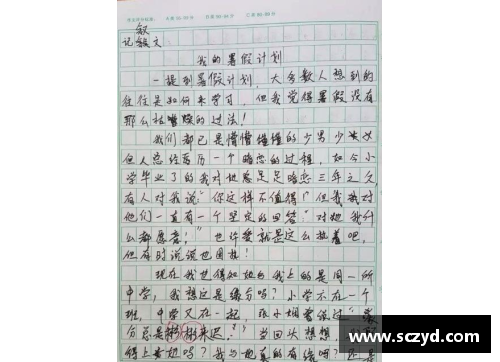 叙
记敘文
我的暑假计划
一提到暑假计划,大多数人想到的
往往是如何来学习,但我觉得暑假没有
那么枯燥的过法!
我们都已是懵懵懂懂的少男少女
但人总经历历一个暗恋的过程,如今小
学毕业了的我对她总是足足暗恋三年之久
有人对我说:“你这样不值得!”但我对
他们一直有一个坚定的回答:“对她我什
么都愿意!”也许爱就是这么执着吧,
但有时说说也困扰!
现在我也得知她和我上的是同一所
中学,我想这是缘分吗?小学不在一个
班,中学又在一起,张小娴曾说过“缘
分总是彬彬来迟?”当回头想想,
得上有她吗?我与她真的有缘吗?还是
www.sczyd.com